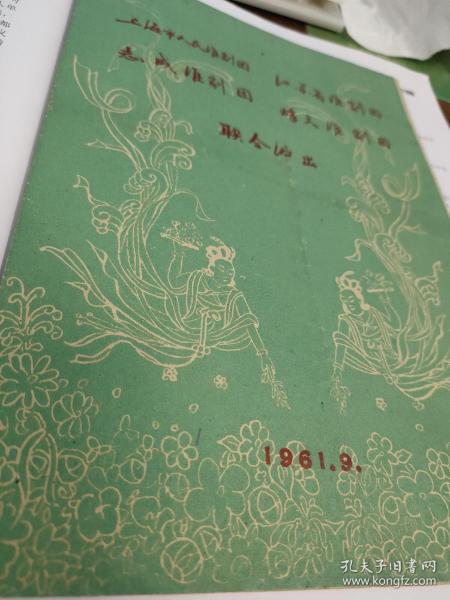 上海市人民淮剧团 江苏省淮剧团
志成淮剧团 烽火淮剧团
联合演出
1961.9.
孔夫子旧书网
www.kongfz.com